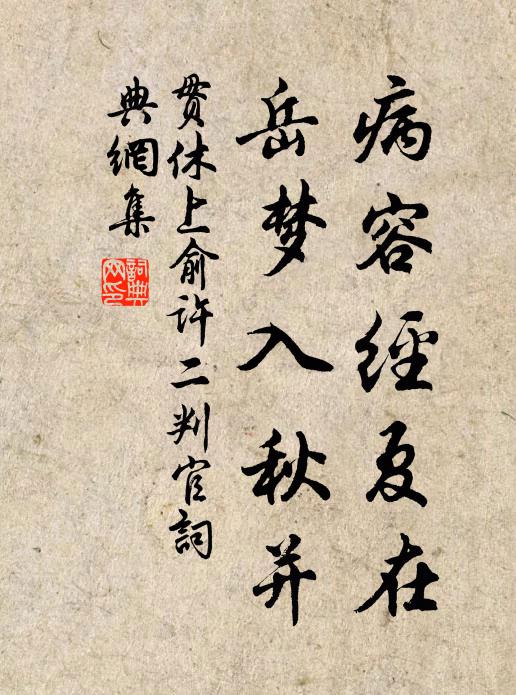 病容經夏在
岳梦入秋并
贯休上俞许二判官詞
典網集
詞典网印